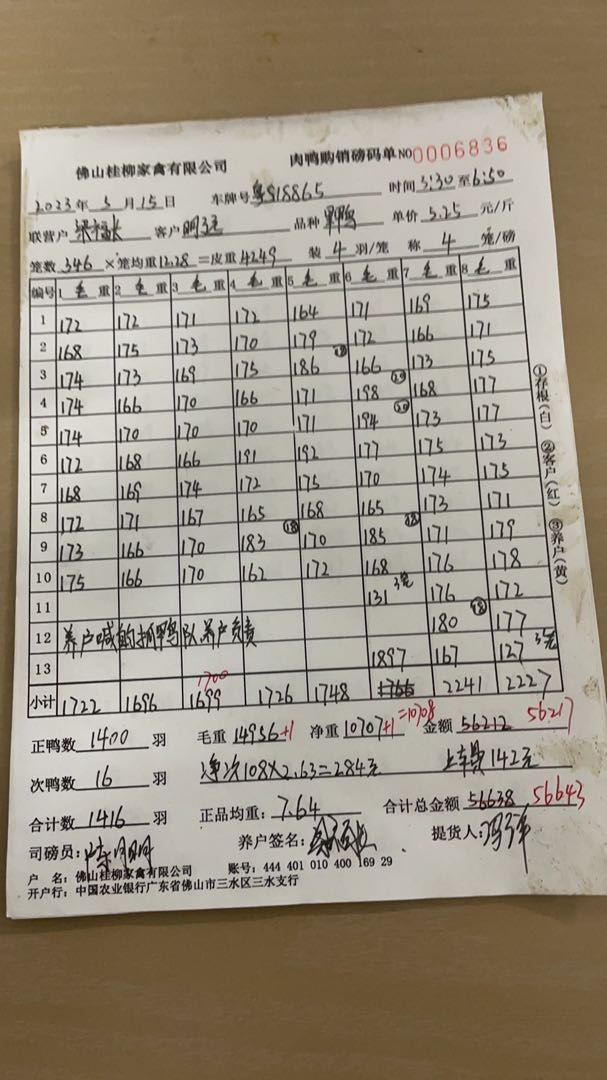 佛山桂柳家禽有限公司 肉鸭购销磅码单 NO 0006836
2023年 5 月 15 日 车牌号 粤S18865 时间 3:30 至 6:50
联营户 梁福长 客户 品种 单价 5.25 元/斤
笼数 346 ×笼均重 12.28 =皮重 4249 装 4 羽/笼 称 4 笼/磅
编号 1 毛 重 2 毛 重 3 毛 重 4 毛 重 5 毛 重 6 毛 重 7 毛 重 8 毛 重
1 172 172 171 172 164 171 169 175
2 168 175 173 170 179 172 166 171
3 174 173 169 175 186 166 173 175
4 174 166 170 166 171 198 168 177
5 174 170 170 170 171 194 173 177
6 172 168 166 191 192 177 175 173
7 168 169 174 172 175 170 174 175
8 172 171 167 165 168 165 173 171
9 173 166 170 183 ⑱ 170 185 ⑱ 171 179
10 175 166 170 162 172 168 176 178
11 131 3笼 176 172
12 养户喊的抓鸭队,养户负责 180 177 ⑱
13 1897 167 127 3笼
1700
小计 1722 1696 1699 1726 1748 1766 2241 2227
正鸭数 1400 羽 毛重 14956+1 净重 10707+1=10708 金额 56212 56217
次鸭数 16 羽 净次108×2.63=284元 上车费142元
合计数 1416 羽 正品均重: 7.64 合计总金额 56638 56643
司磅员: 养户签名: 提货人:
户 名: 佛山桂柳家禽有限公司 账号: 444 401 010 400 169 29
开户行: 中国农业银行广东省佛山市三水区三水支行
①存根(白) ②客户(红) ③养户(黄)